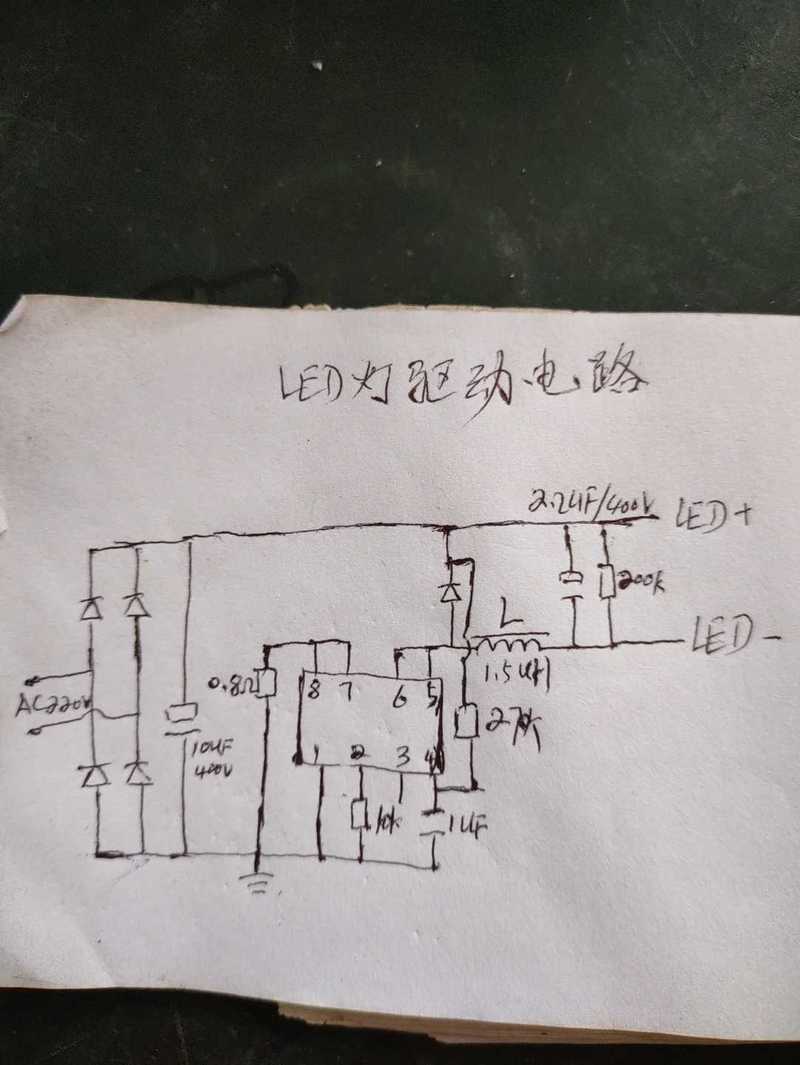 LED灯驱动电路
2.2UF/400V
LED+
200k
L
LED-
1.5UH
0.8Ω
8 7 6 5
AC220V
10UF
400V
27K
1 2 3 4
10k
1UF